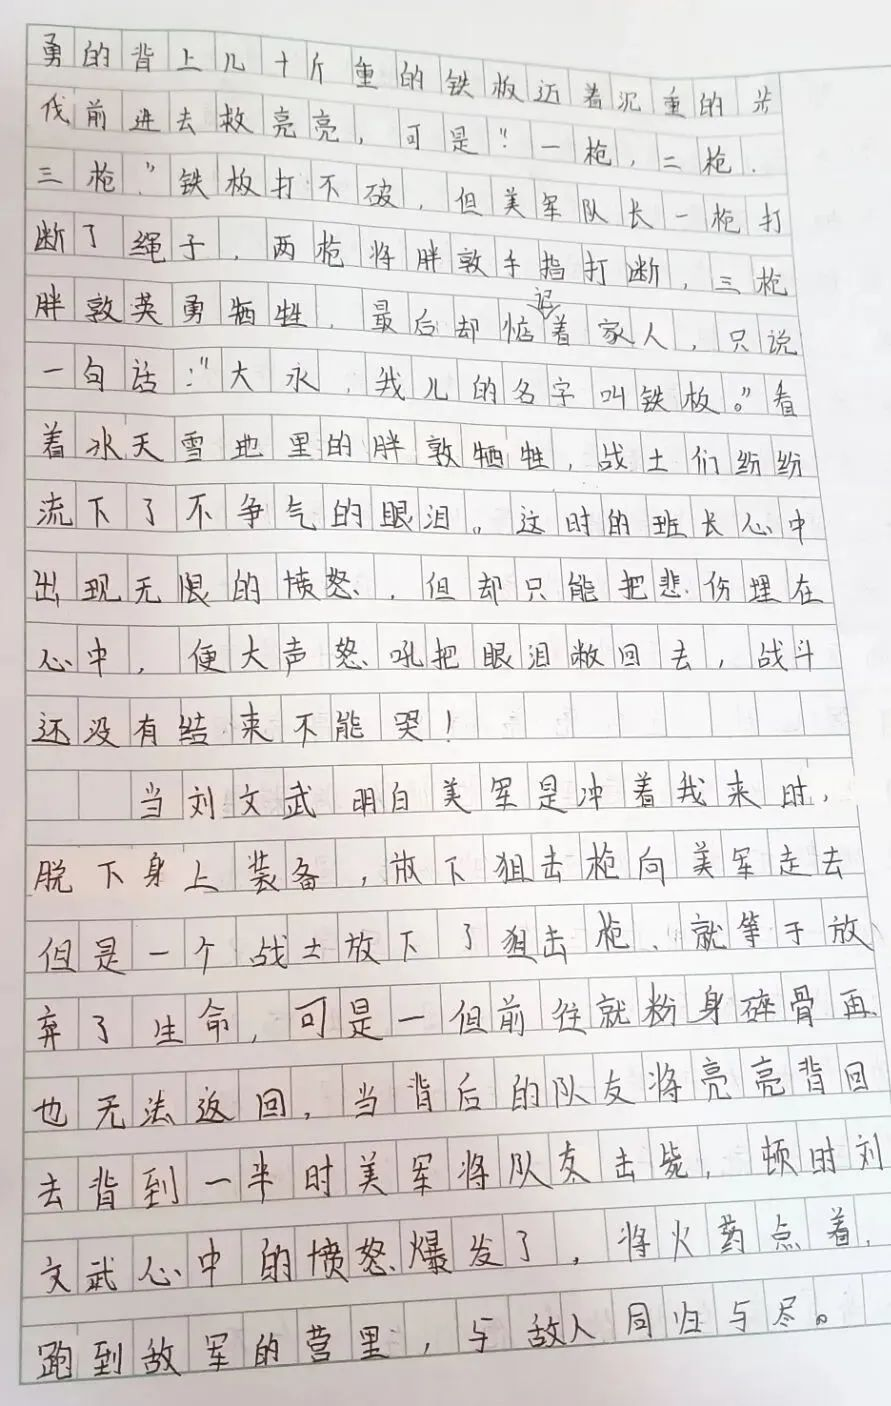 勇的背上几十斤重的铁板迈着沉重的步
伐前进去救亮亮,可是"一枪,二枪.
三枪."铁板打不破,但美军队长一枪打
断了绳子,两枪将胖敦手指打断,三枪
胖敦英勇牺牲,最后却惦记着家人,只说
一句话:"大永,我儿的名字叫铁板。"看
着冰天雪地里的胖敦牺牲,战士们纷纷
流下了不争气的眼泪。这时的班长心中
出现无限的愤怒,但却只能把悲伤埋在
心中,便大声怒吼把眼泪敝回去,战斗
还没有结束不能哭!
当刘文武明白美军是冲着我来时,
脱下身上装备,放下狙击枪向美军走去
但是一个战士放下了狙击枪、就等于放
弃了生命,可是一但前往就粉身碎骨再
也无法返回,当背后的队友将亮亮背回
去背到一半时美军将队友击毙,顿时刘
文武心中的愤怒爆发了,将火药点着,
跑到敌军的营里,与敌人同归与尽。